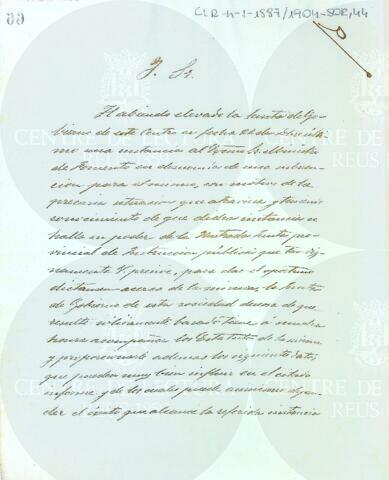 99
CLR-4-1-1887/1904-SOR,44
I. Sr.
Habiendo elevado la Junta de Go-
bierno de este Centro en fecha 21 de
mo una instancia al Exmo Sr. Ministro
de Fomento en demanda de una subven-
cion para el mismo, con motivo de la
precaria situacion que atraviesa y teniendo
conocimiento de que dicha instancia se
halla en poder de la Ilustrada Junta pro-
vincial de Instruccion pública que tan dig-
namente V. preside, para dar el oportuno
dictamen acerca de la misma; la Junta
de Gobierno de esta sociedad deseosa de que
resulte
honra acompañar los Estatutos de la misma
y proporcionarle ademas los siguientes datos,
que pueden muy bien influir en el citado
informe y de los cuales puede asimismo depen-
der el éxito que alcance la referida instancia
CENTRE DE LECTURA
REUS